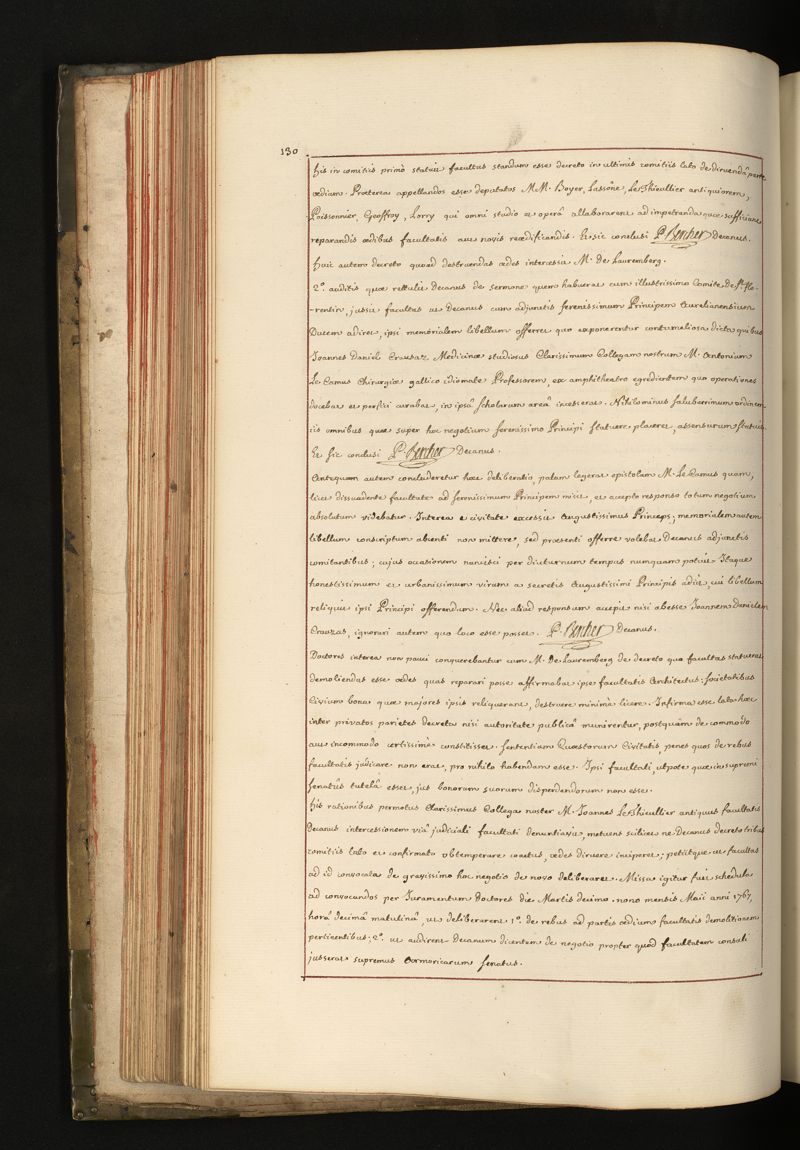 130
his in comitiis primò statuit facultas standum esse decreto in ultimis comitiis lato de diruendâ parte
ædium. Præterea appellandos esse deputatos M.M. Boyer, Lassône, LeThieullier antiquiorem,
Poissonnier, Geoffroy, Lorry qui omni studio et operâ allaborarent ad impetranda quæ sufficiant
reparandis ædibus facultatis aut novis reædificandis. Et sic conclusi P. Bercher Decanus.
huic autem decreto quoad destruendas ædes intercessit M. de Lauremberg.
2°. auditis quæ rettulit Decanus de sermone quem habuerat cum illustrissimo Comite de St. Flo-
-rentin, jussit facultas ut Decanus cum adjunctis serenissimum Principem Aurelianensium
Ducem adiret, ipsi memorialem libellum offerret quo exponerentur contumeliosa dicta quibus
Joannes Daniel Crausaz Medicinæ studiosus Clarissimum Collegam nostrum M. Antonium
Le Camus Chirurgiæ gallico idiomate Professorem, ex amphitheatro egredientem quo operationes
docebat et perfici curabat, in ipsâ scholarum areâ incesserat. Nihilominus saluberrimum ordinem
iis omnibus quæ super hoc negotium serenissimo Principi statuere placeret, assensurum statuit.
Et sic conclusi P. Bercher Decanus.
Antequam autem concluderetur hæc deliberatio, palam legerat epistolam M. Le Camus quam,
licet dissuadente facultate ad serenissimum Principem misit, et accepto responso totum negotium
absolutum videbatur. Interea e civitate excessit Augustissimus Princeps; memorialem autem
libellum conscriptum absenti non mittere, sed præsenti offerre volebat Decanus adjunctis
comitantibus; cujus occasionem nancisci per diuturnum tempus numquam potuit. Itaque
honestissimum et urbanissimum virum a secretis Augustissimi Principis adiit, cui libellum
reliquit ipsi Principi offerendum. Nec aliud responsum accepit nisi abesse Joannem Danielem
Crausas, ignorari autem quo loco esse posset. P. Bercher Decanus.
Doctores interea non pauci conquerebantur cum M. de Lauremberg de decreto quo facultas statuerat
demoliendas esse ædes quas reparari posse affirmabat ipse facultatis Architectus: societatibus
Civium bona quæ majores ipsis reliquerant, destruere minimè licere. Infirma esse lata hæc
inter privatos parietes decreta nisi autoritate publicâ munirentur, postquam de commodo
aut incommodo certissimè constitisset. Sententiam Quæstorum Civitatis, penes quos de rebus
facultatis judicare non erat, pro nihilo habendam esse. Ipsi facultati, utpote quæ in supremi
senatûs tutelâ esset, jus bonorum suorum disperdendorum non esse.
his rationibus permotus Clarissimus Collega noster M. Joannes LeThieullier antiquus facultatis
Decanus intercessionem viâ judiciali facultati denuntiavit, metuens scilicet ne Decanus decreto tribus
comitiis lato et confirmato obtemperare coactus, ædes diruere inciperet; petiitque ut facultas
ad id convocata de gravissimo hoc negotio de novo deliberaret. Missa igitur fuit schedula
ad convocandos per Juramentum doctores die Martis decimo-nono mensis Maii anni 1767,
horâ decimâ matutinâ, ut deliberarent 1°. de rebus ad partis ædium facultatis demolitionem
pertinentibus; 2°. ut audirent Decanum dicentem de negotio propter quod facultatem consuli
jusserat supremus Armoricarum senatus.